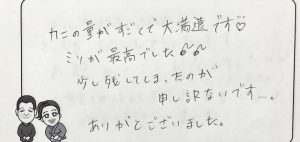 カニの量がすごくで大満遠です♡
ミソが最高でした♪♪
少し残してしまったのが
申し訳ないです…。
ありがとございました。